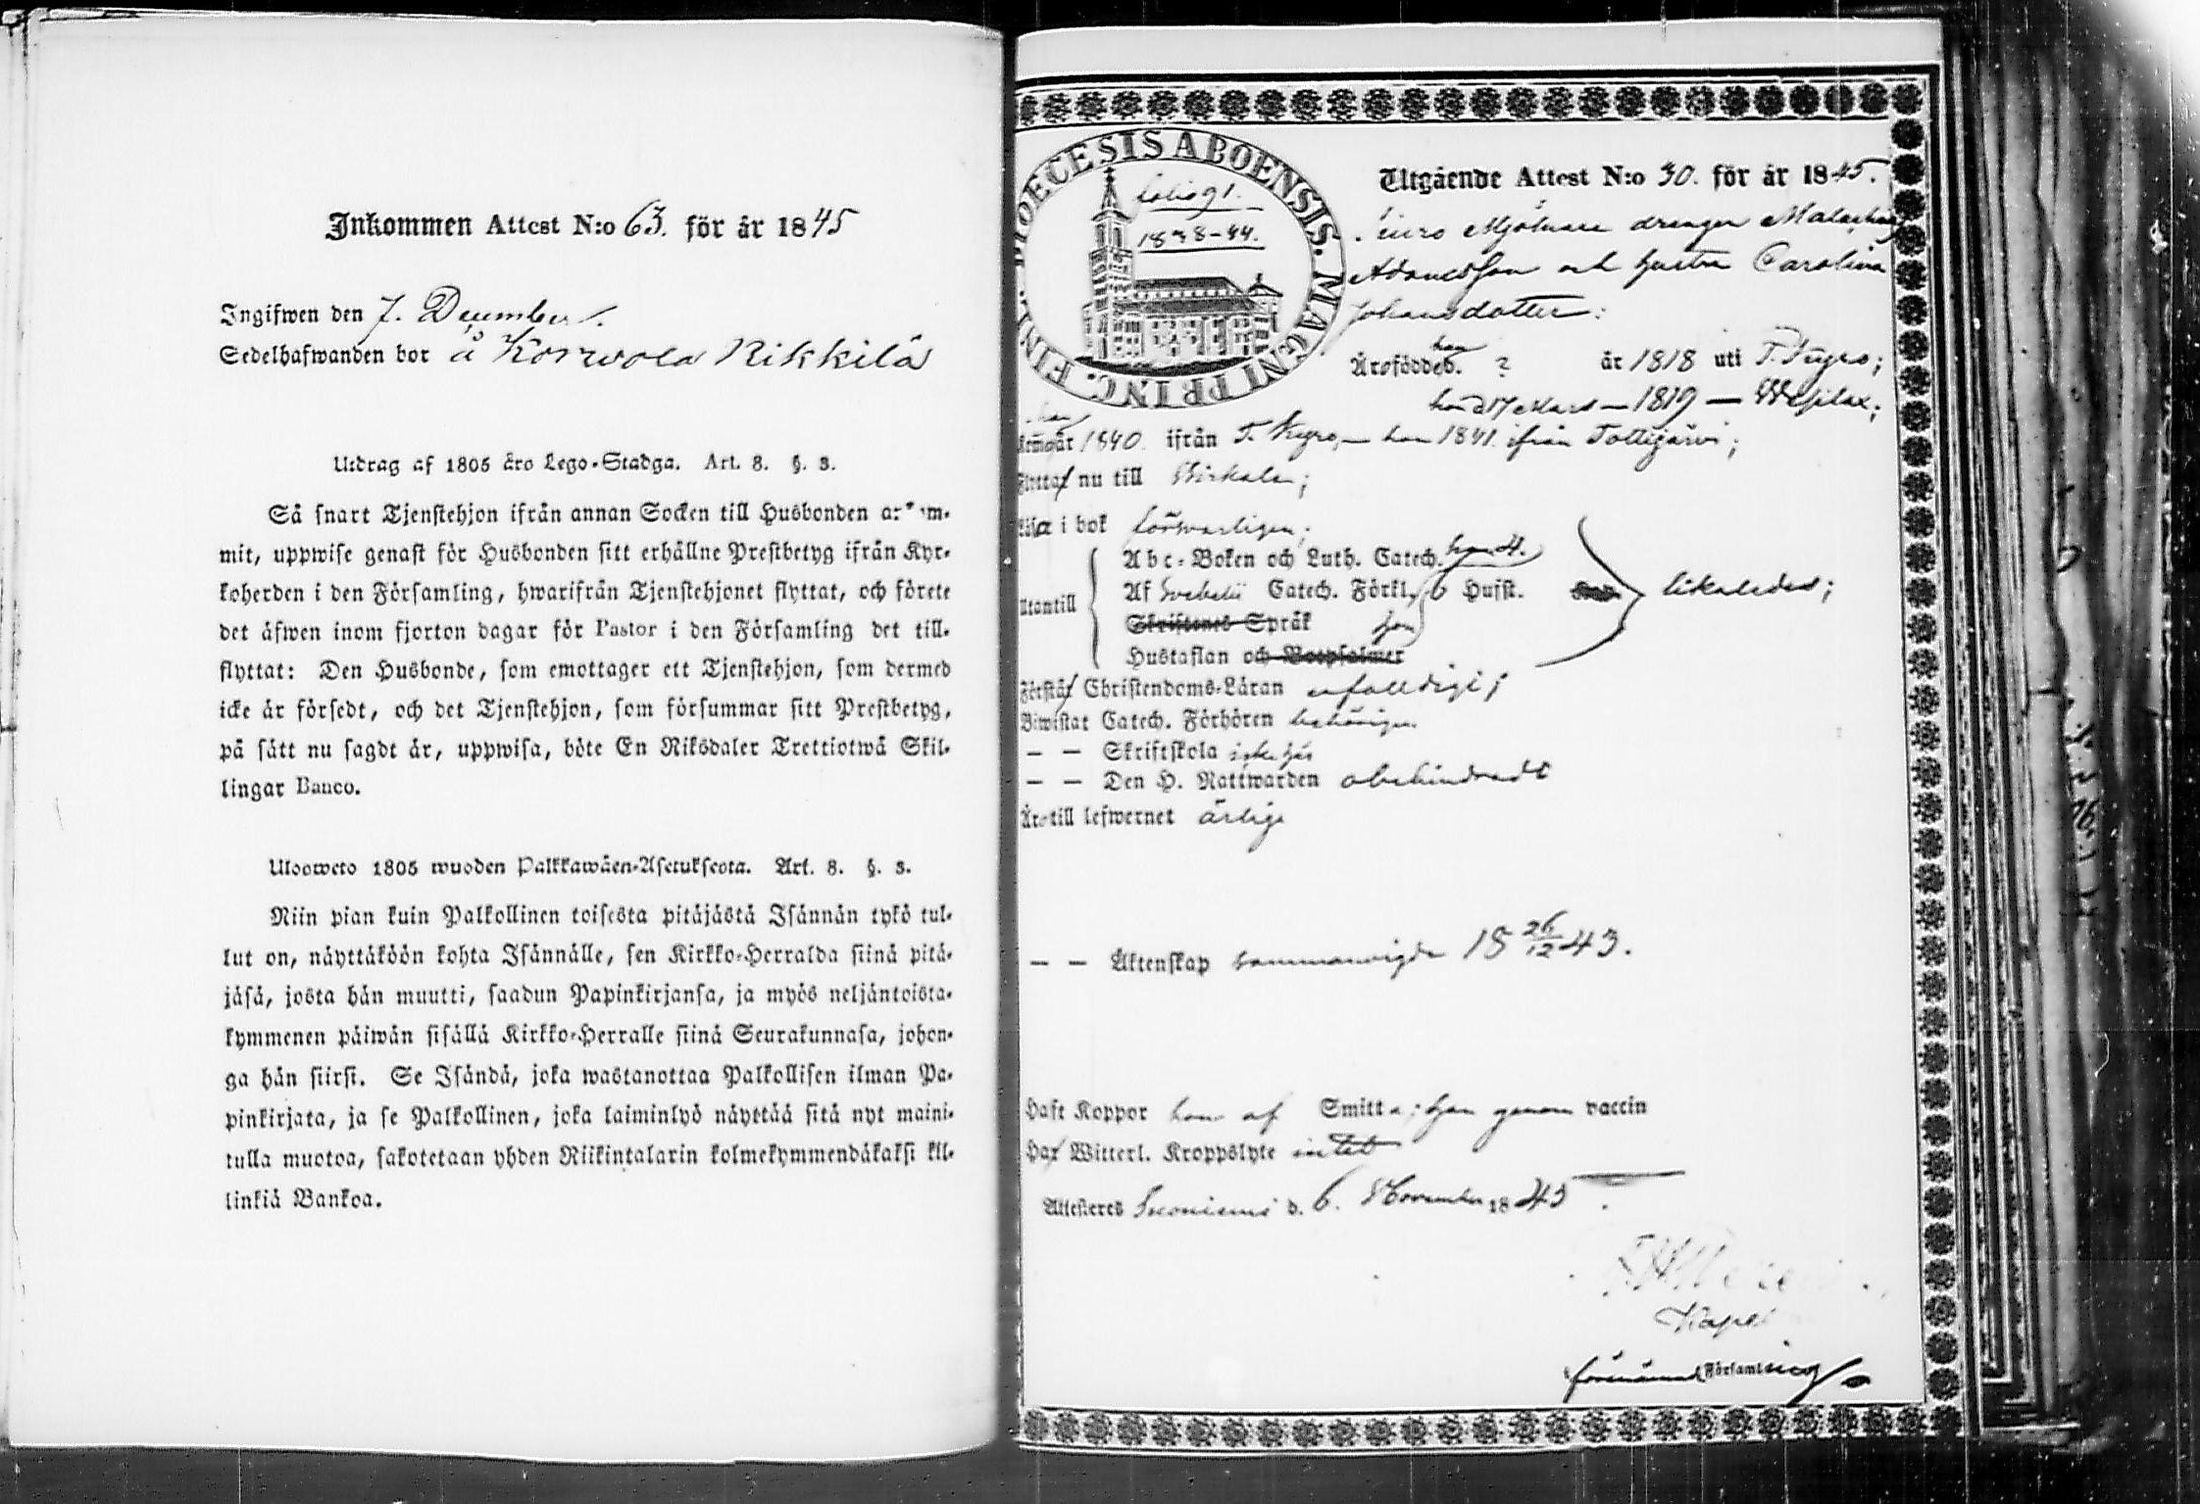 Inkommen Attest N:o 63. för år 1845
Ingifwen den 7. December.
Sedelhafwanden bor å Korwola Nikkilä
Utdrag af 1805 års Lego-Stadga. Art. 8. §. 3.
Så snart Tjenstehjon ifrån annan Socken till Husbonden
mit, uppwise genast för Husbonden sitt erhållne Prestbetyg ifrån Kyr-
koherden i den Församling, hwarifrån Tjenstehjonet flyttat, och förete
det äfwen inom fjorton dagar för Pastor i den Församling det till-
flyttat: Den Husbonde, som emottager ett Tjenstehjon, som dermed
icke är försedt, och det Tjenstehjon, som försummar sitt Prestbetyg,
på sätt nu sagdt är, uppwisa, böte En Riksdaler Trettiotwå Skil-
lingar Banco.
Ulosweto 1805 wuoden Palkkawäen-Asetuksesta. Art. 8. §. 3.
Niin pian kuin Palkollinen toisesta pitäjästä Isännän tykö tul-
lut on, näyttäköön kohta Isännälle, sen Kirkko-Herralda siinä pitä-
jäsä, josta hän muutti, saadun Papinkirjansa, ja myös neljäntoista-
kymmenen päiwän sisällä Kirkko-Herralle siinä Seurakunnasa, johon-
ga hän siirsi. Se Isändä, joka wastanottaa Palkollisen ilman Pa-
pinkirjata, ja se Palkollinen, joka laiminlyö näyttää sitä nyt maini-
tulla muotoa, sakotetaan yhden Riikintalarin kolmekymmendäkaksi kil-
linkiä Bankoa.
DIOECESIS ABOENSIS. MAGNI PRINC. FINL.
folio 91.
1838-44.
Utgående Attest N:o 30. för år 1845.
Mjölnare drengen
Adamsson och hustru Carolina
Johansdotter:
Äro födde d. han ? år 1818 uti T. Kyro;
hon d 17 Mars — 1819 — Wesilax;
han år 1840. ifrån T. Kyro, — hon 1841. ifrån Tottijärvi;
Flytta nu till Birkala;
Läsa i bok försvarligen;
Utantill
Abc-Boken och Luth. Catech. han 4.
Af Svebelii Catech. Förkl. 6 Hufst. likaledes;
Skriftenes Språk hon
Hustaflan och Botpsalmer
Förstå Christendoms-Läran enfalldigt;
Biwistat Catech. Förhören behörigen
— — Skriftskola icke här
— — Den H. Nattwarden obehindradt
Äro till lefwernet ärliga
— — Äktenskap sammanvigda 18 26/12 43.
Haft Koppor hon af Smitta; han genom vaccin
Ha Witterl. Kroppslyte intet
Attesteras Suoniemi d. 6. November 1845.
Kapel
förenämnd Församling